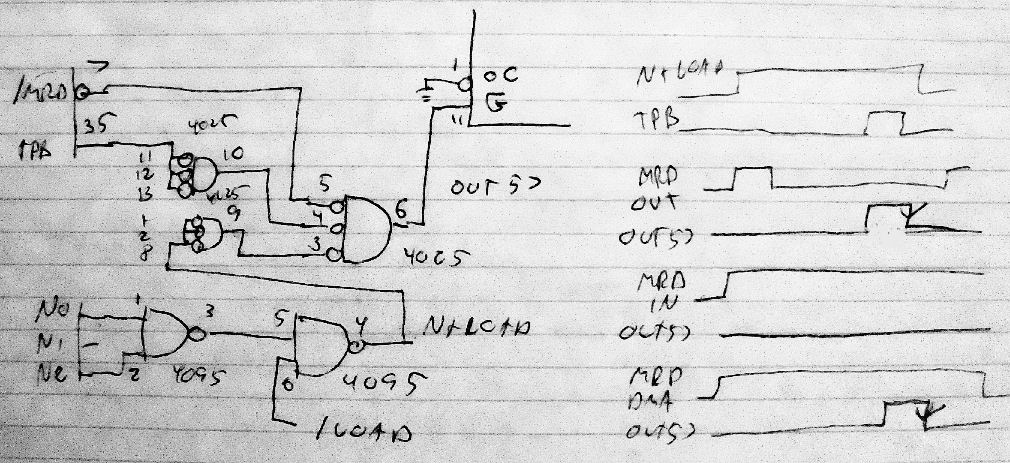 /MRD
TPB
35
4025
11
12
13
10
4025
1
2
8
9
5
4
3
6
4025
1
OC
G
11
OUT 5>
N0
N1
N2
1
2
3
4095
5
6
4
4095
N+LOAD
/LOAD
N+LOAD
TPB
MRD
OUT
OUT5>
MRD
IN
OUT5>
MRD
DMA
OUT5>